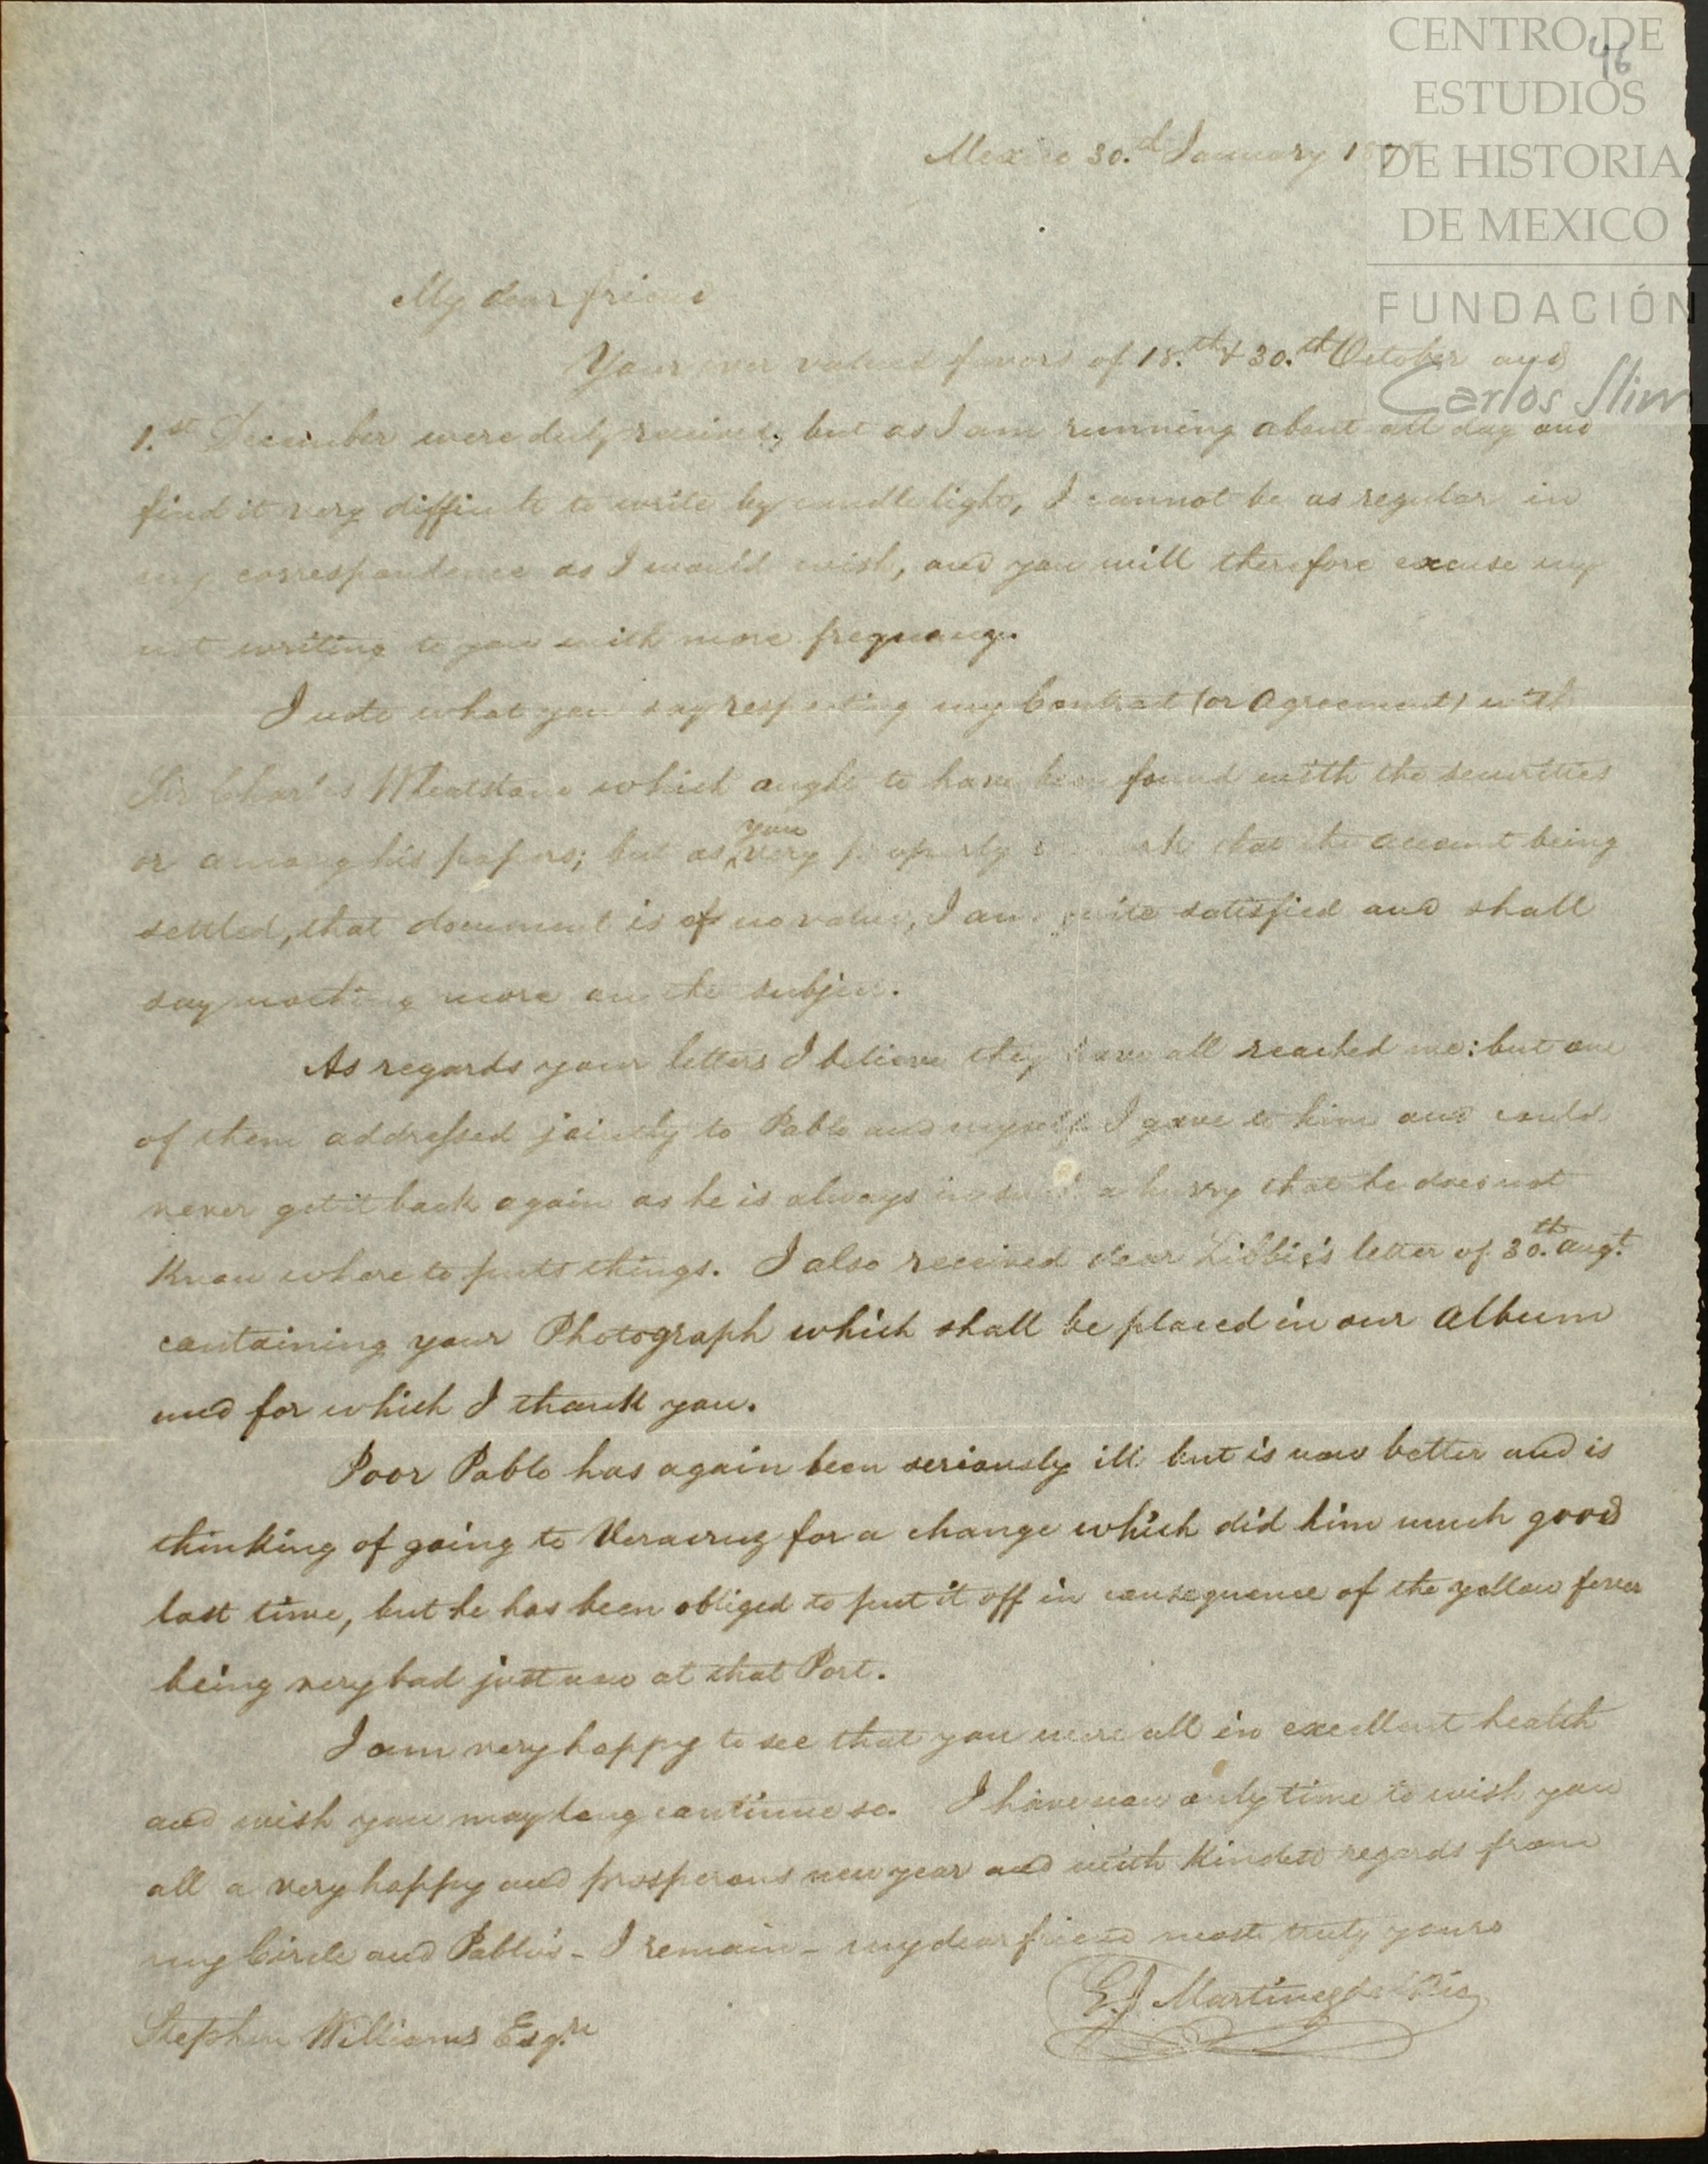 CENTRO DE
ESTUDIOS
DE HISTORIA
DE MEXICO
FUNDACIÓN
Carlos Slim
46
Mexico 30.d January
My dear friend
Your ever valued favors of 18.th & 30.th October and
1.st December were duly received, but as I am running about all day and
find it very difficult to write by candle light, I cannot be as regular in
my correspondence as I would wish, and you will therefore excuse my
not writing to you with more frequency.
I note what you say respecting my Contract (or Agreement) with
Sir Charles Wheatstone which ought to have been found with the securities
or among his papers; but as you very properly remark that the account being
settled, that document is of no value, I am quite satisfied and shall
say nothing more on the subject.
As regards your letters I believe they have all reached me: but one
of them addressed jointly to Pablo and myself I gave to him and could
never get it back again as he is always in such a hurry that he does not
know where to puts things. I also received dear Libbie's letter of 30.th Augt.
containing your Photograph which shall be placed in our Album
and for which I thank you.
Poor Pablo has again been seriously ill but is now better and is
thinking of going to Veracruz for a change which did him much good
last time, but he has been obliged to put it off in consequence of the yellow fever
being very bad just now at that Port.
I am very happy to see that you were all in excellent health
and wish you may long continue so. I have now only time to wish you
all a very happy and prosperous new year and with kindest regards from
my Circle and Pablo's - I remain - my dear friend most truly yours
G. J. Martinez del Rio
Stephen Williams Esq.re